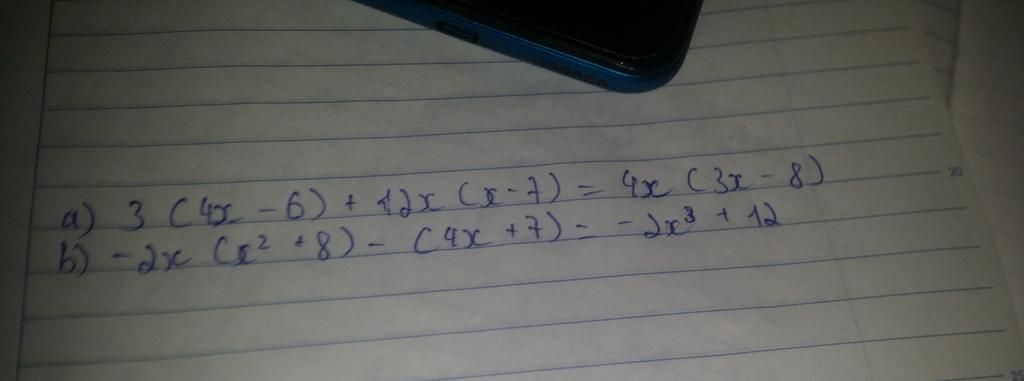 a) 3 (4x - 6) + 12x (x - 7) = 4x (3x - 8)
b) -2x (x² + 8) - (4x + 7) = -2x³ + 12
20
25